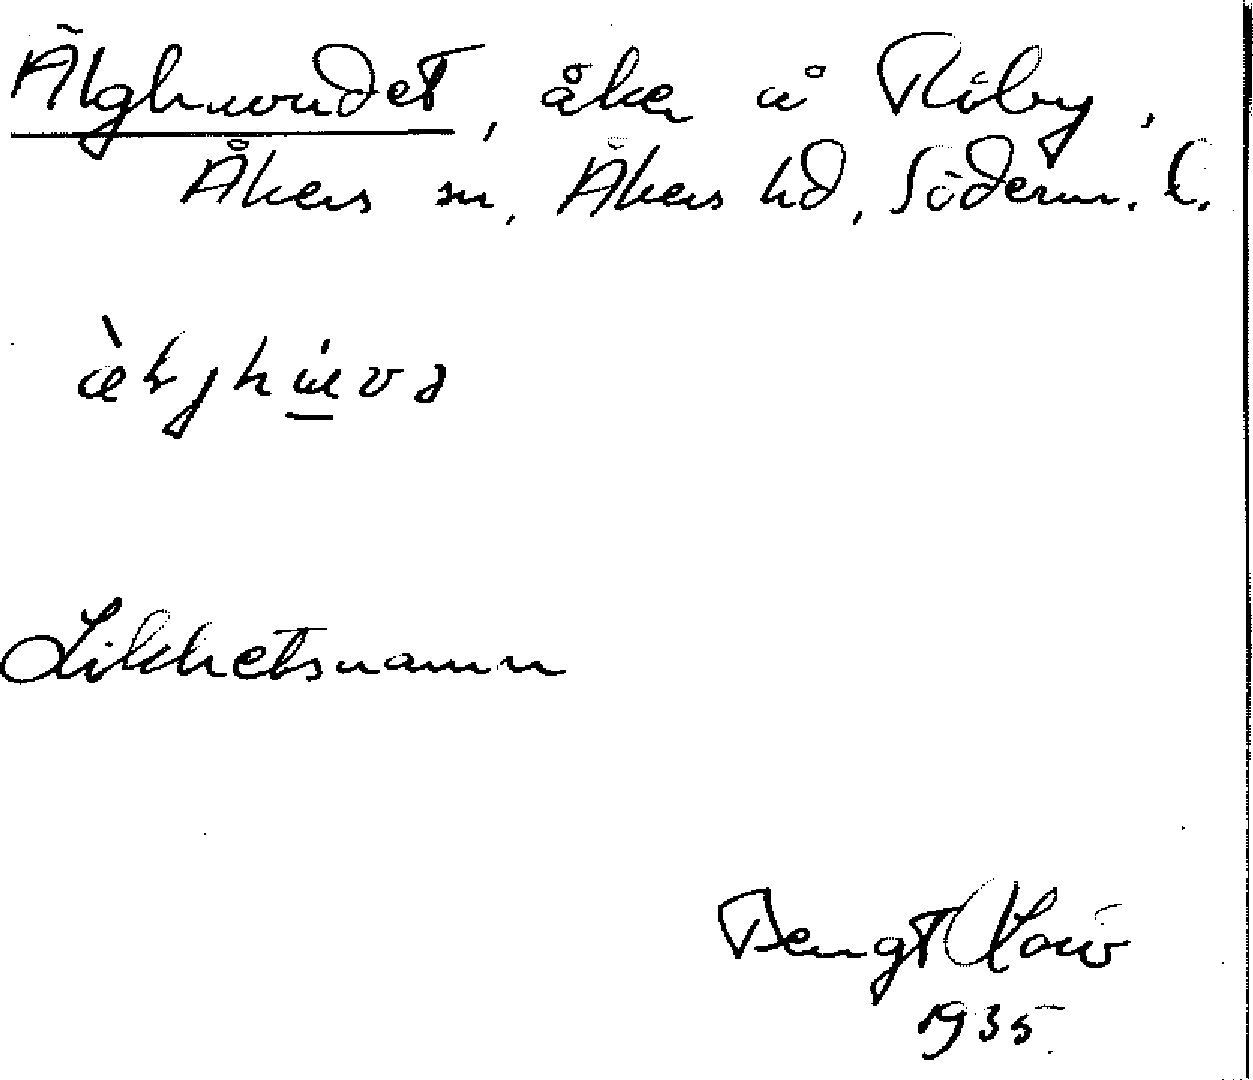 Älghuvudet, åker å Råby,
Åkers sn, Åkers hd, Söderm. l.
Likhetsnamn
Bengt
1935.